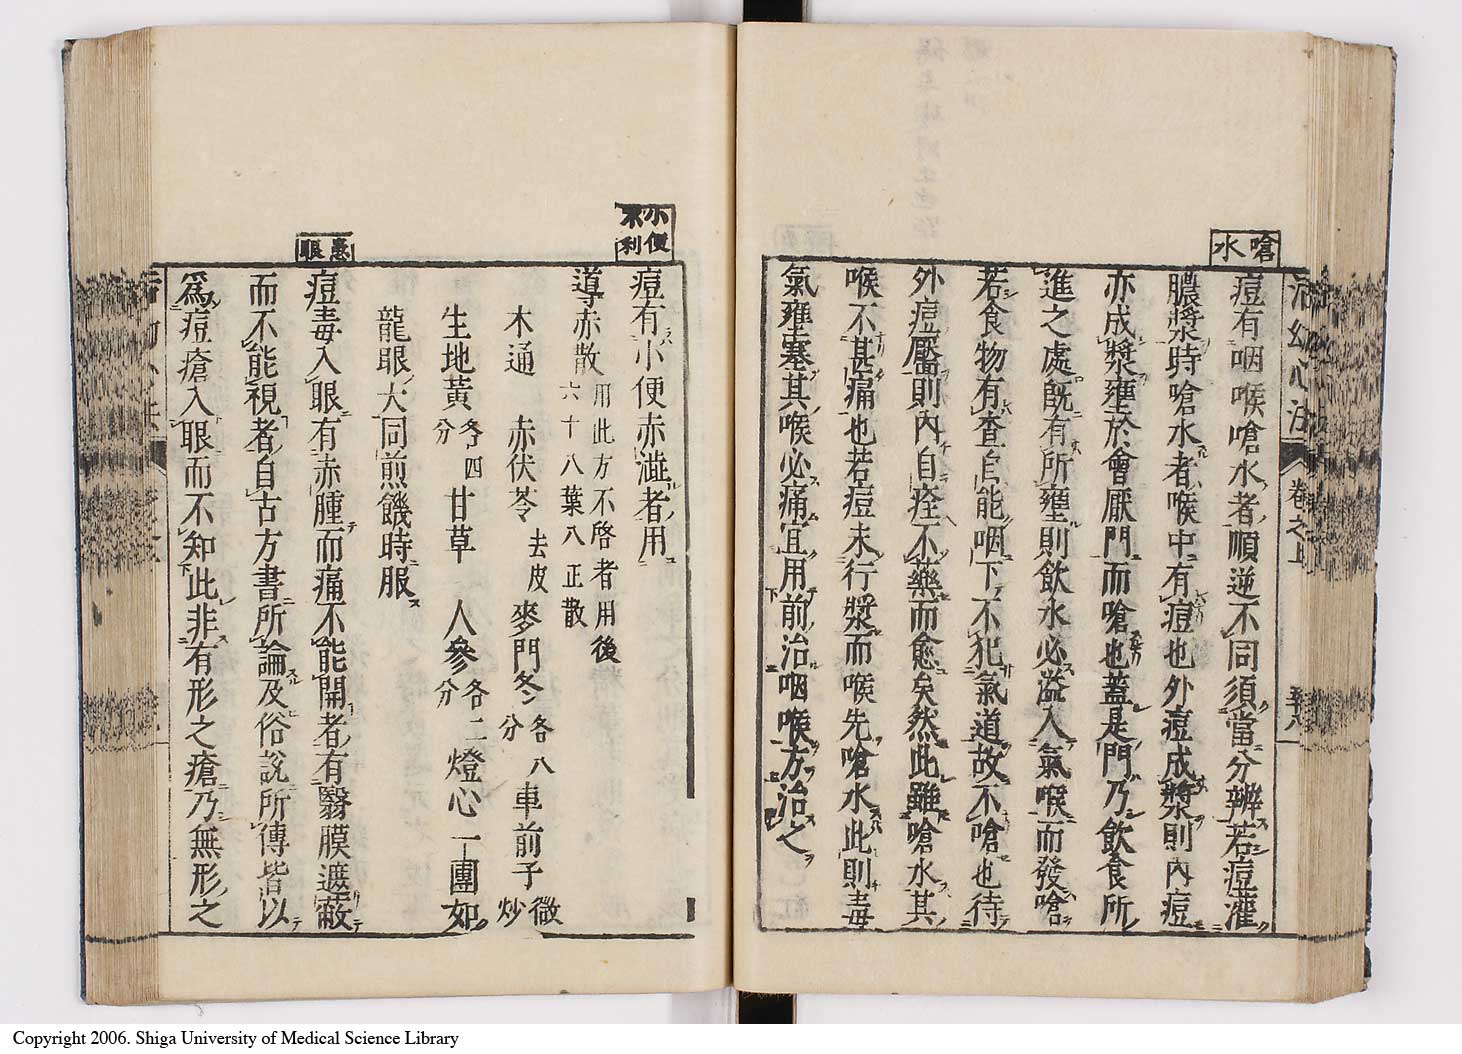 嗆水
痘有咽喉嗆水者順逆不同須當分辨若痘灌
膿漿時嗆水者喉中有痘也外痘成漿則內痘
亦成漿壅於會厭門而嗆也蓋是門乃飲食所
進之處旣有所壅則飲水必溢入氣喉而發嗆
若食物有查自能咽下不犯氣道故不嗆也待
外痘靨則內自痊不藥而愈矣然此雖嗆水其
喉不甚痛也若痘未行漿而喉先嗆水此則毒
氣壅塞其喉必痛宜用前治咽喉方治之
活幼心法
卷之上
小便不利
痘有小便赤澁者用
導赤散 用此方不啓者用後
六十八葉八正散
木通 赤伏苓去皮 麥門冬各八分 車前子微炒
生地黃各四分 甘草 人參各二分 燈心一團 如
龍眼大同煎饑時服
患眼
痘毒入眼有赤腫而痛不能開者有翳膜遮蔽
而不能視者自古方書所論及俗說所傳皆以
爲痘瘡入眼而不知此非有形之瘡乃無形之
Copyright 2006. Shiga University of Medical Science Library